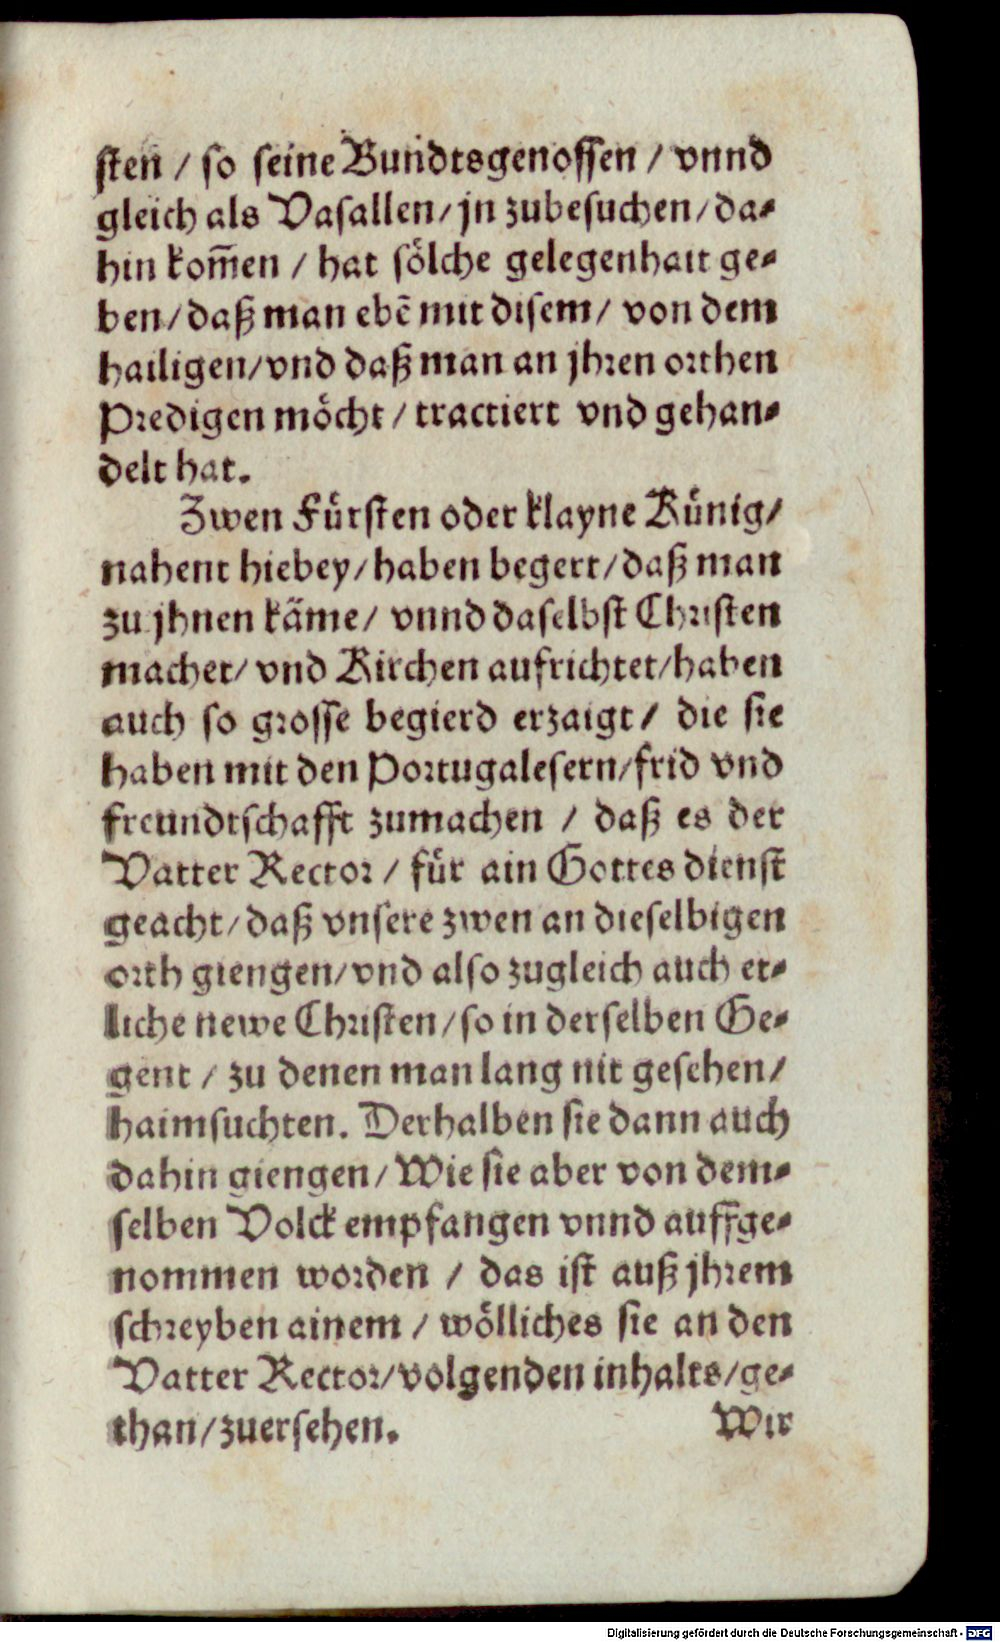 sten / so seine Bundtsgenossen / vnnd
gleich als Vasallen/ jn zubesuchen/ da⸗
hin kom̄en / hat sölche gelegenhait ge⸗
ben/ daß man ebē mit disem/ von dem
hailigen/ vnd daß man an jhren orthen
Predigen möcht / tractiert vnd gehan⸗
delt hat.
Zwen Fürsten oder klayne Künig/
nahent hiebey/ haben begert/ daß man
zu jhnen käme/ vnnd daselbst Christen
machet/ vnd Kirchen aufrichtet/ haben
auch so grosse begierd erzaigt/ die sie
haben mit den Portugalesern/ frid vnd
freundtschafft zumachen / daß es der
Vatter Rector / für ain Gottes dienst
geacht/ daß vnsere zwen an dieselbigen
orth giengen/ vnd also zugleich auch et⸗
liche newe Christen/ so in derselben Ge⸗
gent / zu denen man lang nit gesehen/
haimsuchten. Derhalben sie dann auch
dahin giengen/ Wie sie aber von dem⸗
selben Volck empfangen vnnd auffge⸗
nommen worden / das ist auß jhrem
schreyben ainem / wölliches sie an den
Vatter Rector/ volgenden inhalts/ ge⸗
than/ zuersehen.
Wir
Digitalisierung gefördert durch die Deutsche Forschungsgemeinschaft - DFG